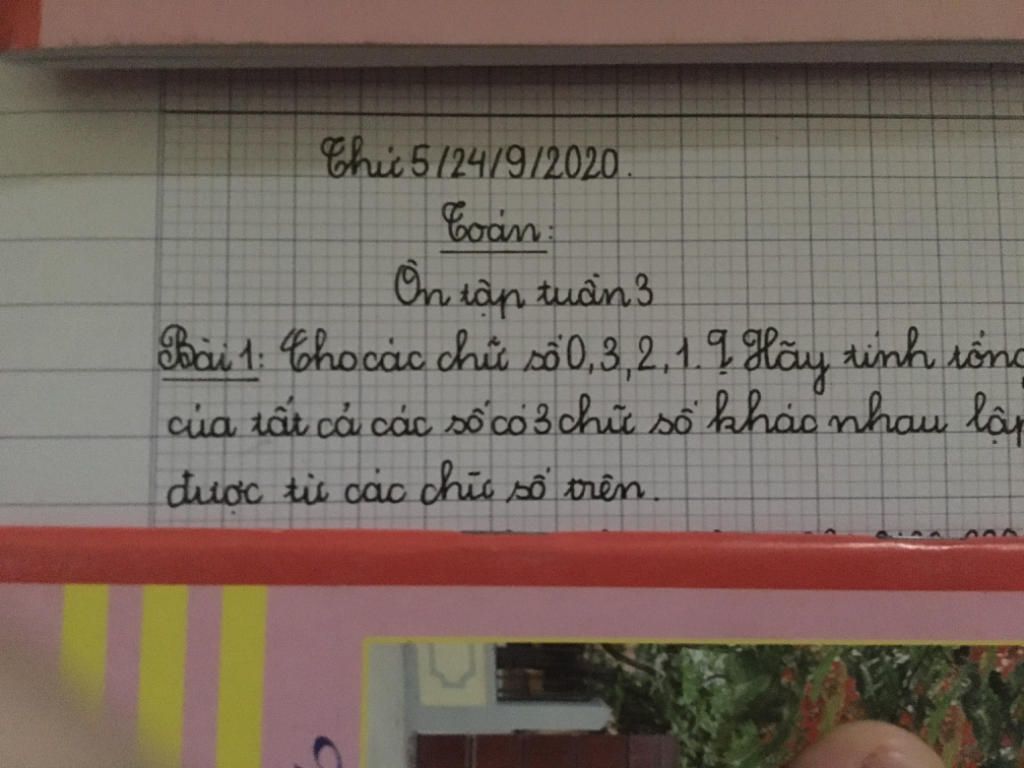 Thứ 5/24/9/2020.
Toán:
Ôn tập tuần 3
Bài 1: Cho các chữ số 0, 3, 2, 1. Hãy tính tổng
của tất cả các số có 3 chữ số khác nhau lập
được từ các chữ số trên.